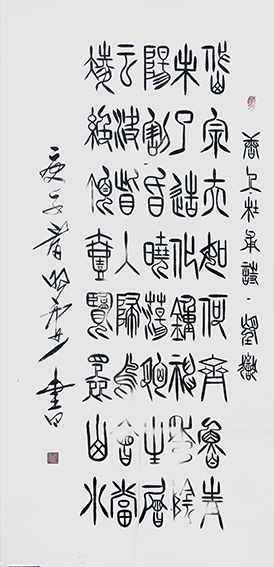 唐人杜甫詩·望嶽
岱宗夫如何齊魯青
未了造化鍾神秀陰
陽割昏曉蕩胸生層
云決眥入歸鳥會當
凌絕頂壹覽眾山小
庚子春 書